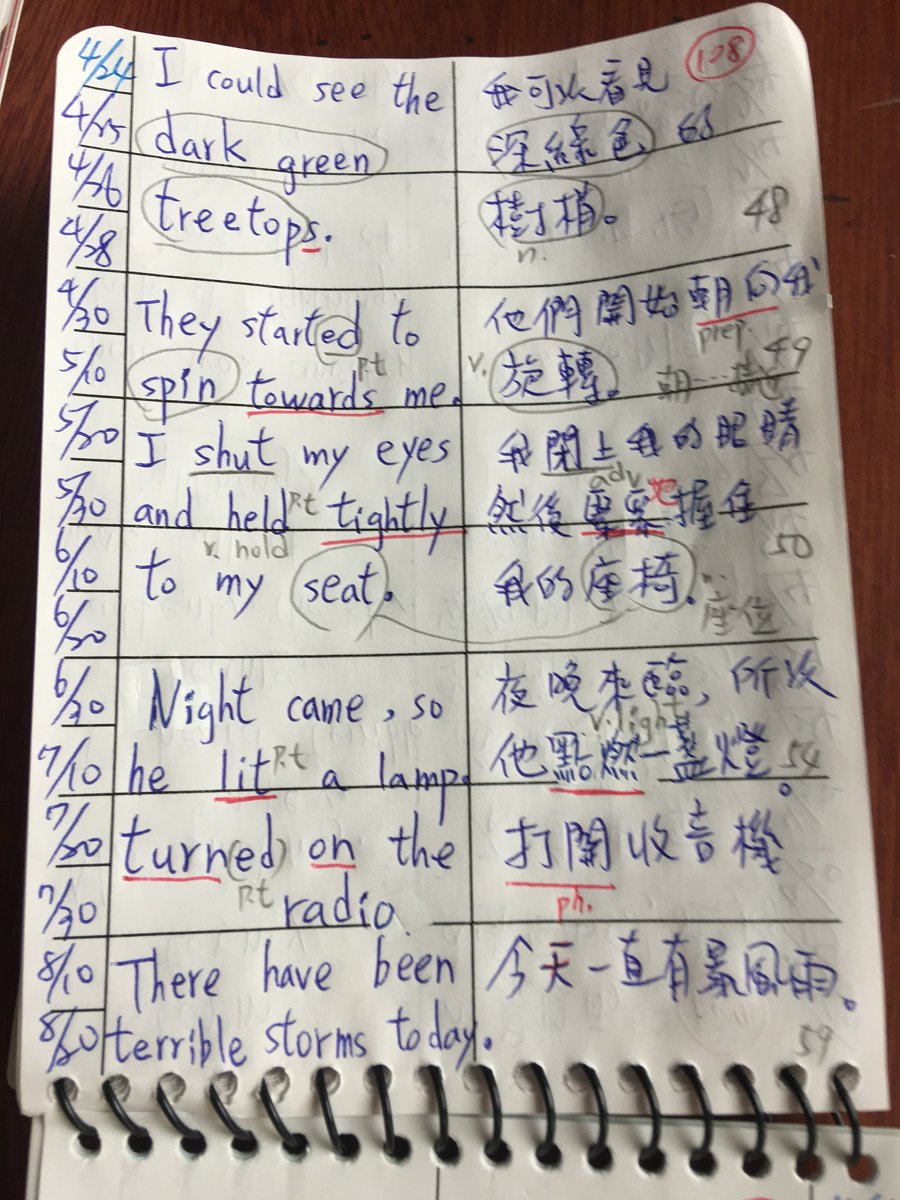 108
4/24 I could see the 我可以看見
4/25 dark green 深綠色的
4/26 treetops. 樹梢。 48
n.
4/28
4/30 They started to 他們開始朝向我
prep.
5/10 spin towards me. v. 旋轉。 49
p.t
5/20 I shut my eyes 我閉上我的眼睛
adv.
5/30 and held p.t tightly 然後緊緊地握住
v. hold 50
6/10 to my seat. 我的座椅. n.
座位
6/20
6/30 Night came, so 夜晚來臨, 所以
v. light
7/10 he lit p.t a lamp. 他點燃一盞燈。 54
7/20 turn(ed) on the 打開收音機
p.t ph.
7/30 radio
8/10 There have been 今天一直有暴風雨。
8/20 terrible storms today. 59